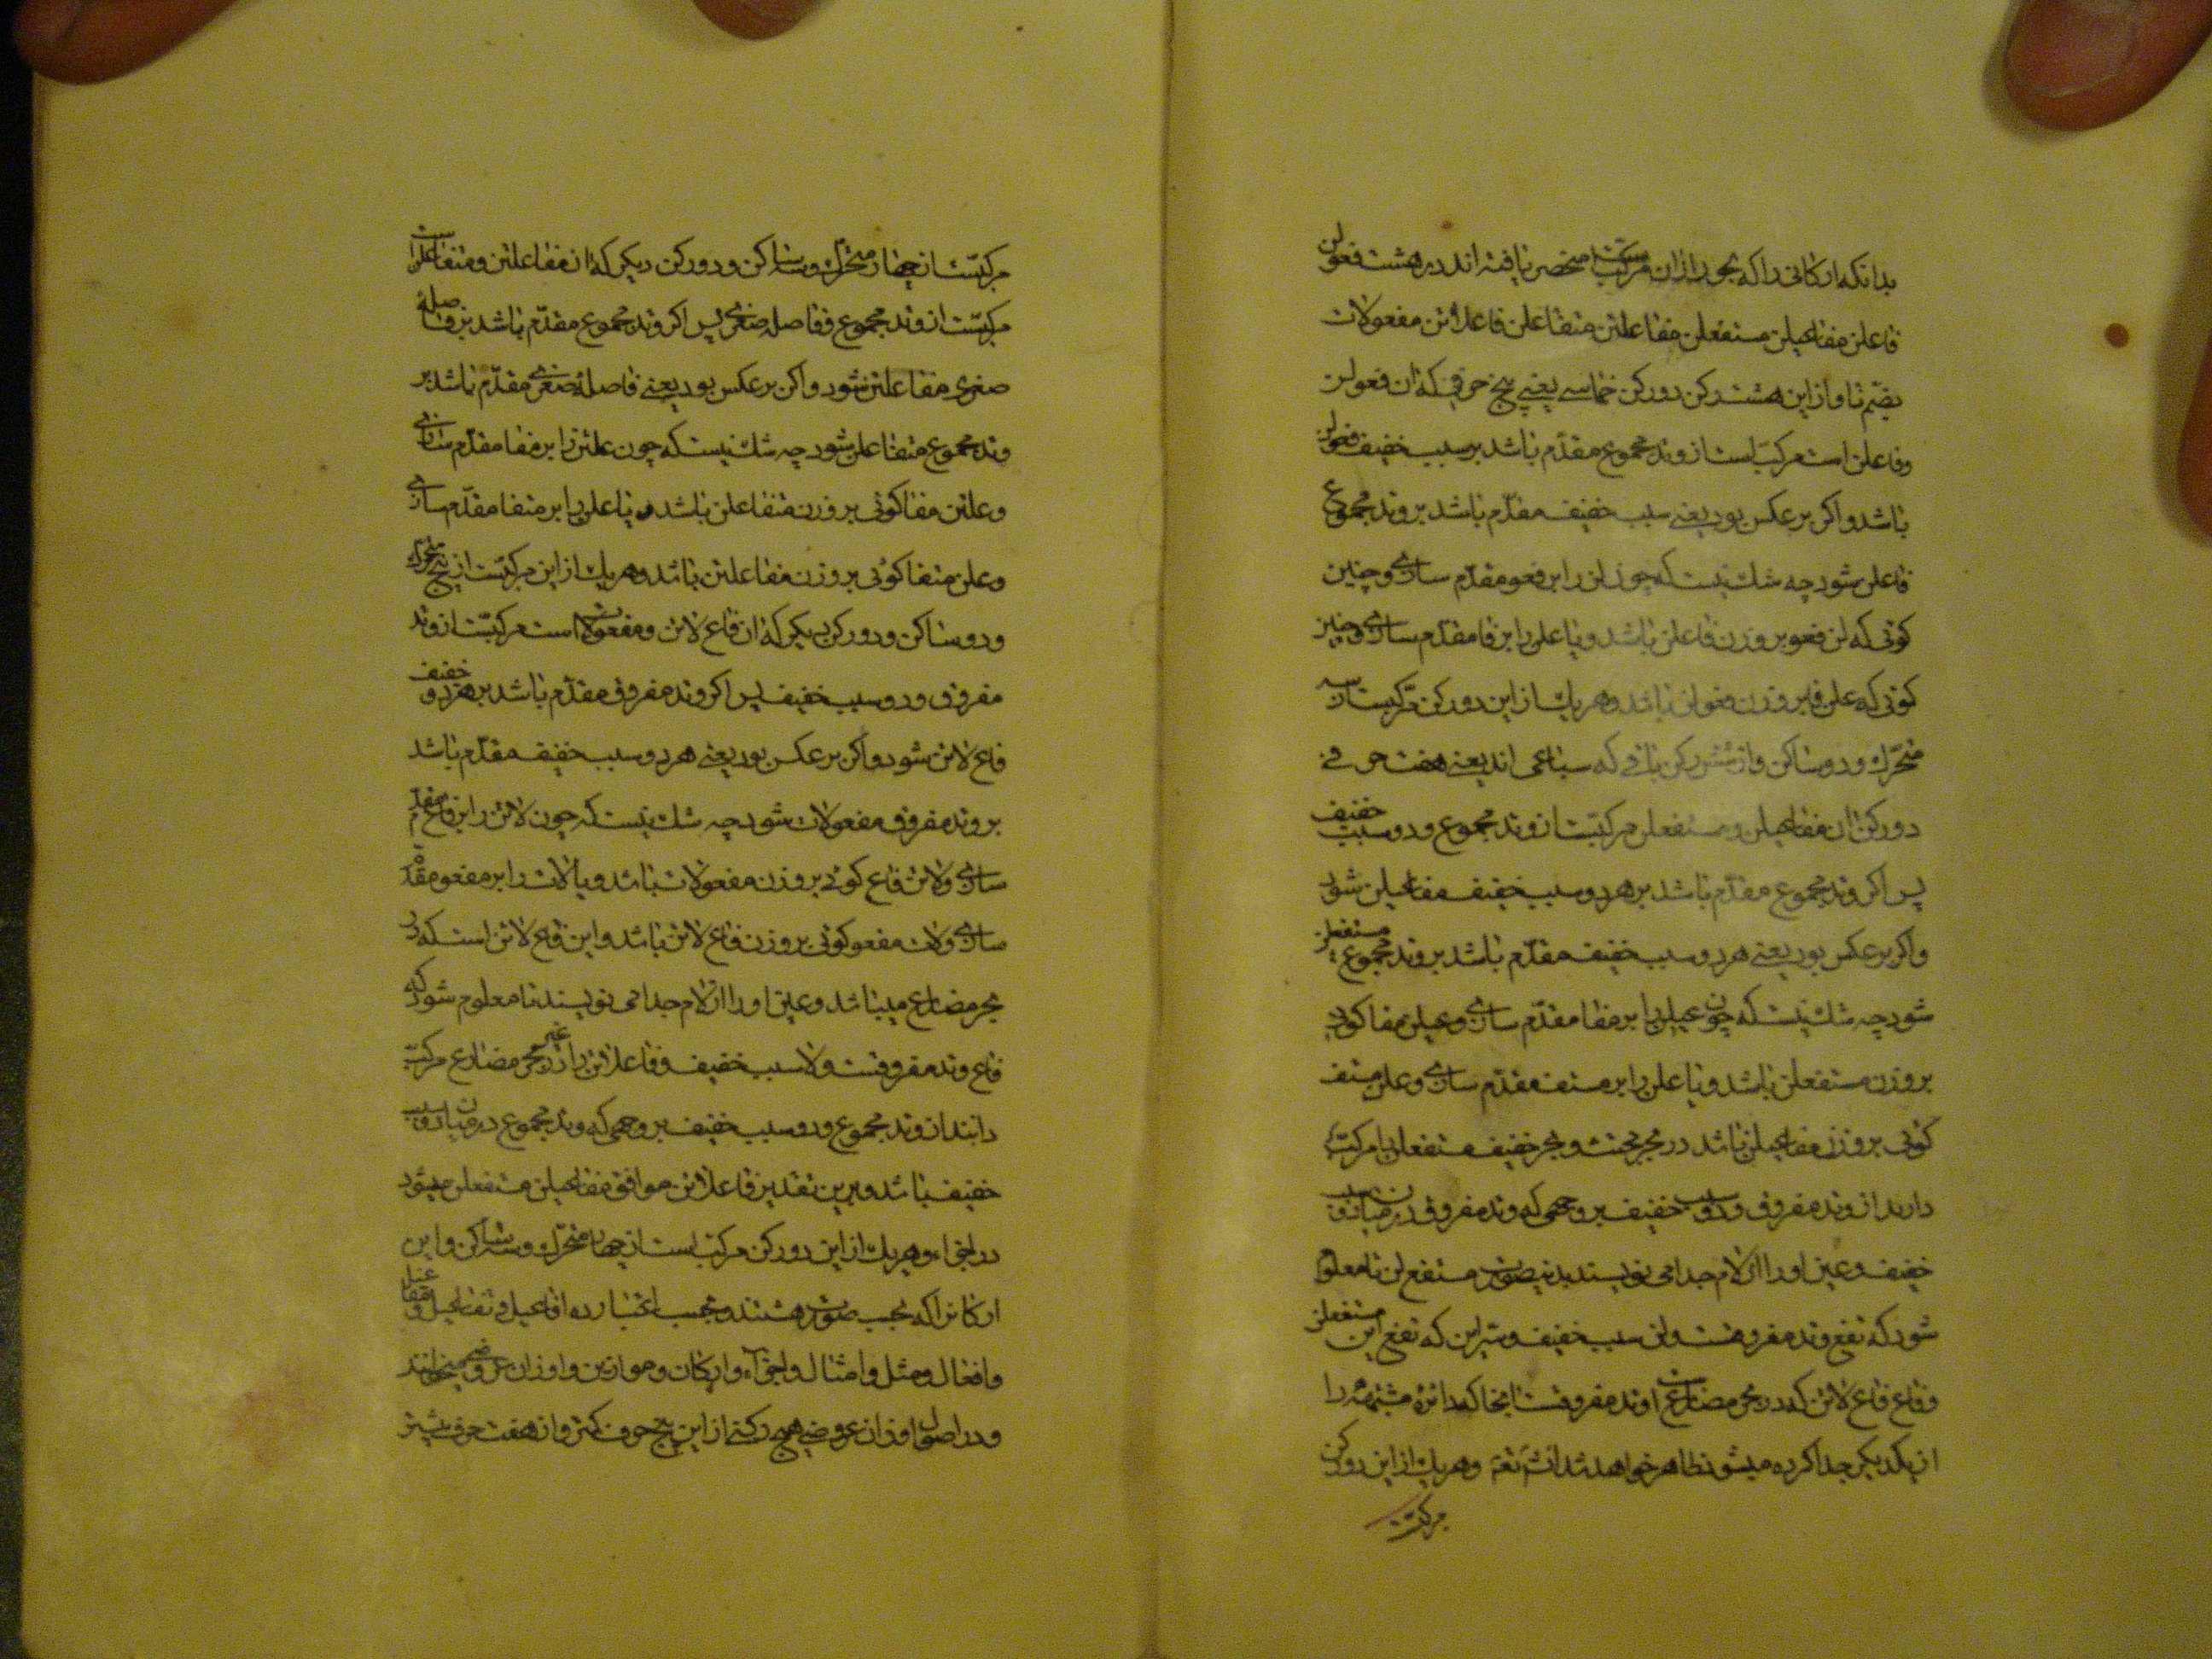 بدانکه ارکانی را که بحور از آن مرکبست منحصر یافته اند در هشت فعولن
فاعلن مفاعیلن مستفعلن مفاعلتن متفاعلن فاعلاتن مفعولات
بضم تا و از این هشت رکن دو رکن خماسی یعنی پنج حرفی که آن فعولن
و فاعلن است مرکب است از وتد مجموع مقدم باشد بر سبب خفیف فعولن
باشد و اکر بر عکس بود یعنی سبب خفیف مقدم باشد بر وتد مجموع
فاعلن شود چه شک نیست که چون لن را بر فعو مقدم سازی و چنین
کوئی که لن فعو بر وزن فاعلن باشد و یا علن را بر فا مقدم سازی و چنین
کوئی که علن فا بر وزن فعولن باشد و هر یک از این دو رکن مرکبست از سه
متحرک و دو ساکن و از شش رکن باقی که سباعی اند یعنی هفت حرفی
دو رکن آن مفاعیلن و مستفعلن مرکبست از وتد مجموع و دو سبب خفیف
پس اکر وتد مجموع مقدم باشد بر هر دو سبب خفیف مفاعیلن شود
و اکر بر عکس بود یعنی هر دو سبب خفیف مقدم باشد بر وتد مجموع مستفعلن
شود چه شک نیست که چون عیلن را بر مفا مقدم سازی و عیلن مفا کوئی
بر وزن مستفعلن باشد و یا علن را بر مستف مقدم سازی و علن مستف
کوئی بر وزن مفاعیلن باشد در بحر مجتث و بحر خفیف مستفعلن را مرکب
دارند از وتد مفروق و دو سبب خفیف بر وجهی که وتد مفروق در میان دو سبب
خفیف و عین او را از لام جدا می نویسند بدینصورت مستفع لن تا معلوم
شود که تفع وتد مفروقست و لن سبب خفیف و سر این که تفع این مستفعلن
و فاع فاع لاتن که در بحر مضارع است وتد مفروقست اینجا که دائره مشتبهه را
از یکدیکر جدا کرده میشود ظاهر خواهد شد انشا الله تعالی و هر یک از این دو رکن
مرکبست
مرکبست از چهار متحرک و سه ساکن و دو رکن دیکر که آن مفاعلتن و متفاعلن است
مرکبست از وتد مجموع و فاصله صغری پس اکر وتد مجموع مقدم باشد بر فاصله
صغری مفاعلتن شود و اکر بر عکس بود یعنی فاصله صغری مقدم باشد بر
وتد مجموع متفاعلن شود چه شک نیست که چون علتن را بر مفا مقدم سازی
و علتن مفا کوئی بر وزن متفاعلن باشد و یا علن را بر متفا مقدم سازی
و علن متفا کوئی بر وزن مفاعلتن باشد و هر یک از این مرکبست از پنج متحرک
و دو ساکن و دو رکن دیکر که آن فاع لاتن و مفعولات است مرکبست از وتد
مفروق و دو سبب خفیف پس اکر وتد مفروق مقدم باشد بر هر دو خفیف
فاع لاتن شود و اکر بر عکس بود یعنی هر دو سبب خفیف مقدم باشد
بر وتد مفروق مفعولات شود چه شک نیست که چون لاتن را بر فاع مقدم
سازی و لاتن فاع کوئی بر وزن مفعولات باشد و یا لات را بر مفعو مقدم
سازی و لات مفعو کوئی بر وزن فاع لاتن باشد و این فاع لاتن است که در
بحر مضارع میباشد و عین او را از لام جدا می نویسند تا معلوم شود که
فاع وتد مفروقست و لا سبب خفیف و فاعلاتن را در غیر بحر مضارع مرکب
دانند از وتد مجموع و دو سبب خفیف بر وجهی که وتد مجموع در میان دو سبب
خفیف باشد و برین تقدیر فاعلاتن موافق مفاعیلن مستفعلن میشود
در اجزاء و هر یک از این دو رکن مرکب است از چهار متحرک و سه ساکن و این
ارکان را که بحسب صورت هشتند و بحسب اعتبار ده افاعیل و تفاعیل و مفاعیل
و افعال و مثل و امثال و اجزاء و ارکان و موازین و اوزان عروض میخوانند
و در اصول اوزان عروضی هیچ رکنی از این پنج حرف کمتر و از هفت حرف بیشتر